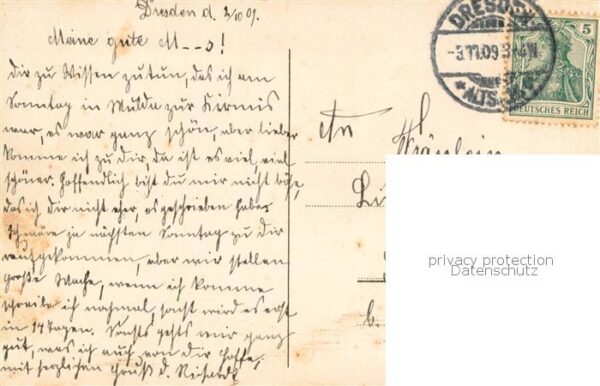 Dresden d. 2/10 09.
Meine gute M---s!
dir zu Wissen zutun, das ich am
Sonntag in Mulda zur Kirmis
war, es war ganz schön, aber lieber
komme ich zu dir, da ist es viel, viel
schöner. hoffendlich bist du mir nicht böse,
das ich dir nicht eher, es geschrieben habe,
ich wäre ja nächsten Sonntag zu dir
raufgekommen, aber wir stellen
große Wache, wenn ich komme
schreibe ich nochmal, sonst wird es erst
in 14 Tagen. Sonst gehts mir ganz
gut, was ich auch von dir hoffe,
mit herzlichen Gruß d.
DRESDEN
-3.11.09
ALTST.
5
DEUTSCHES REICH
An
Fräulein
privacy protection
Datenschutz